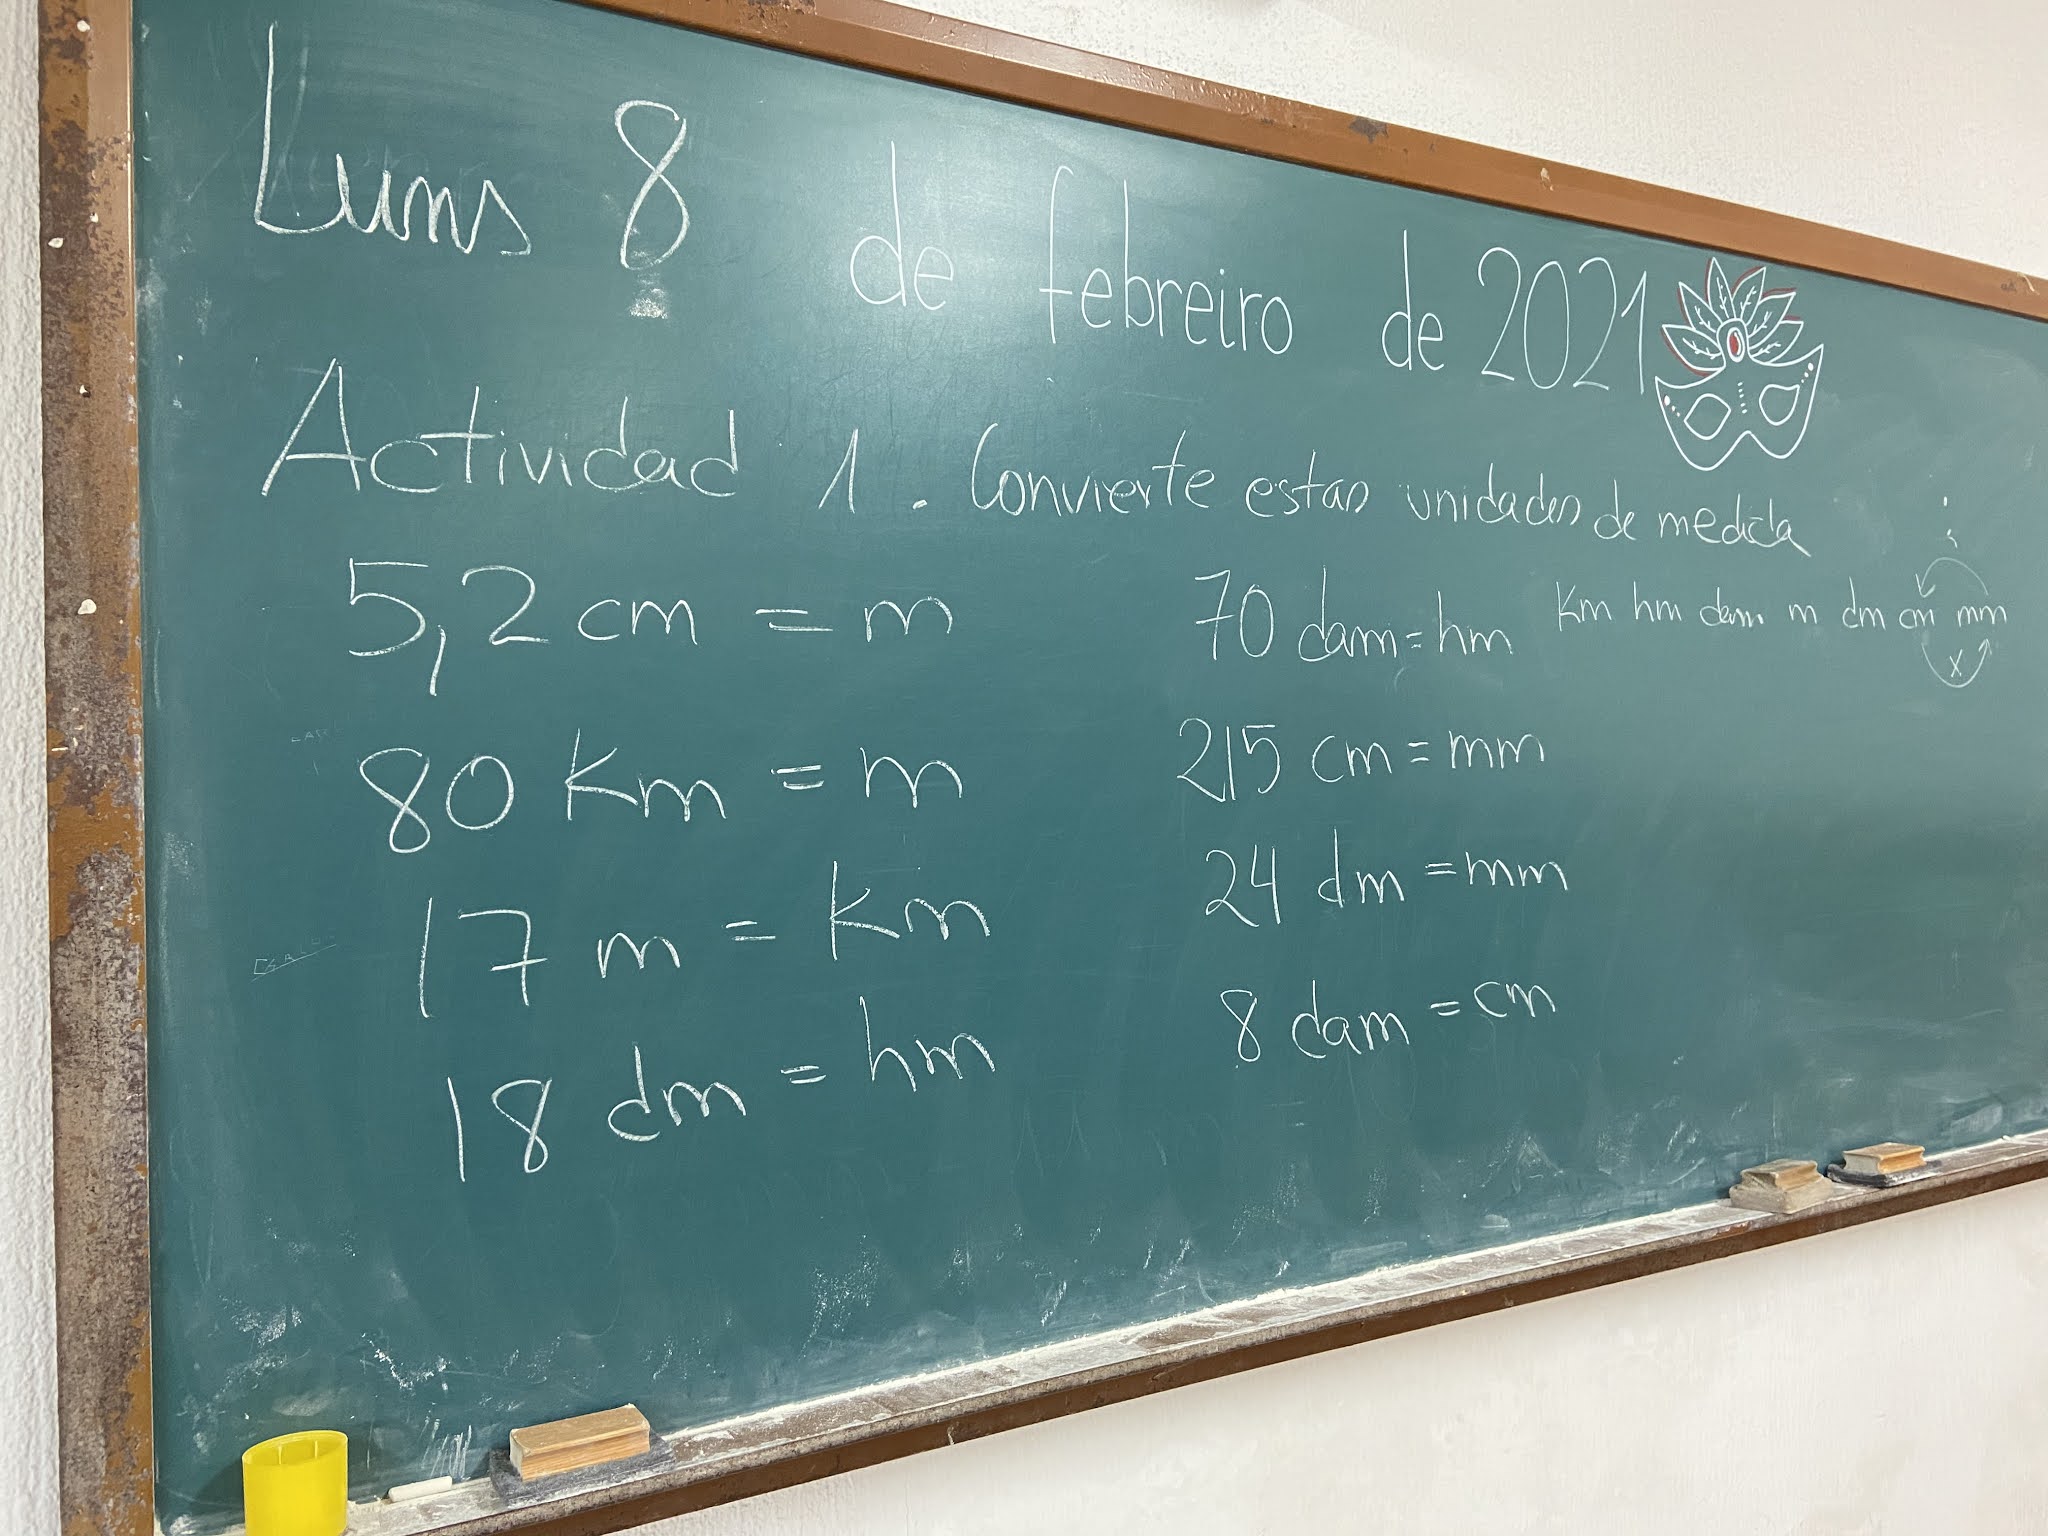 Luns 8 de febreiro de 2021
Actividad 1. Convierte estas unidades de medida
5,2 cm = m
80 Km = m
17 m = Km
18 dm = hm
70 dam = hm
215 cm = mm
24 dm = mm
8 dam = cm
:
Km hm dam m dm cm mm
x